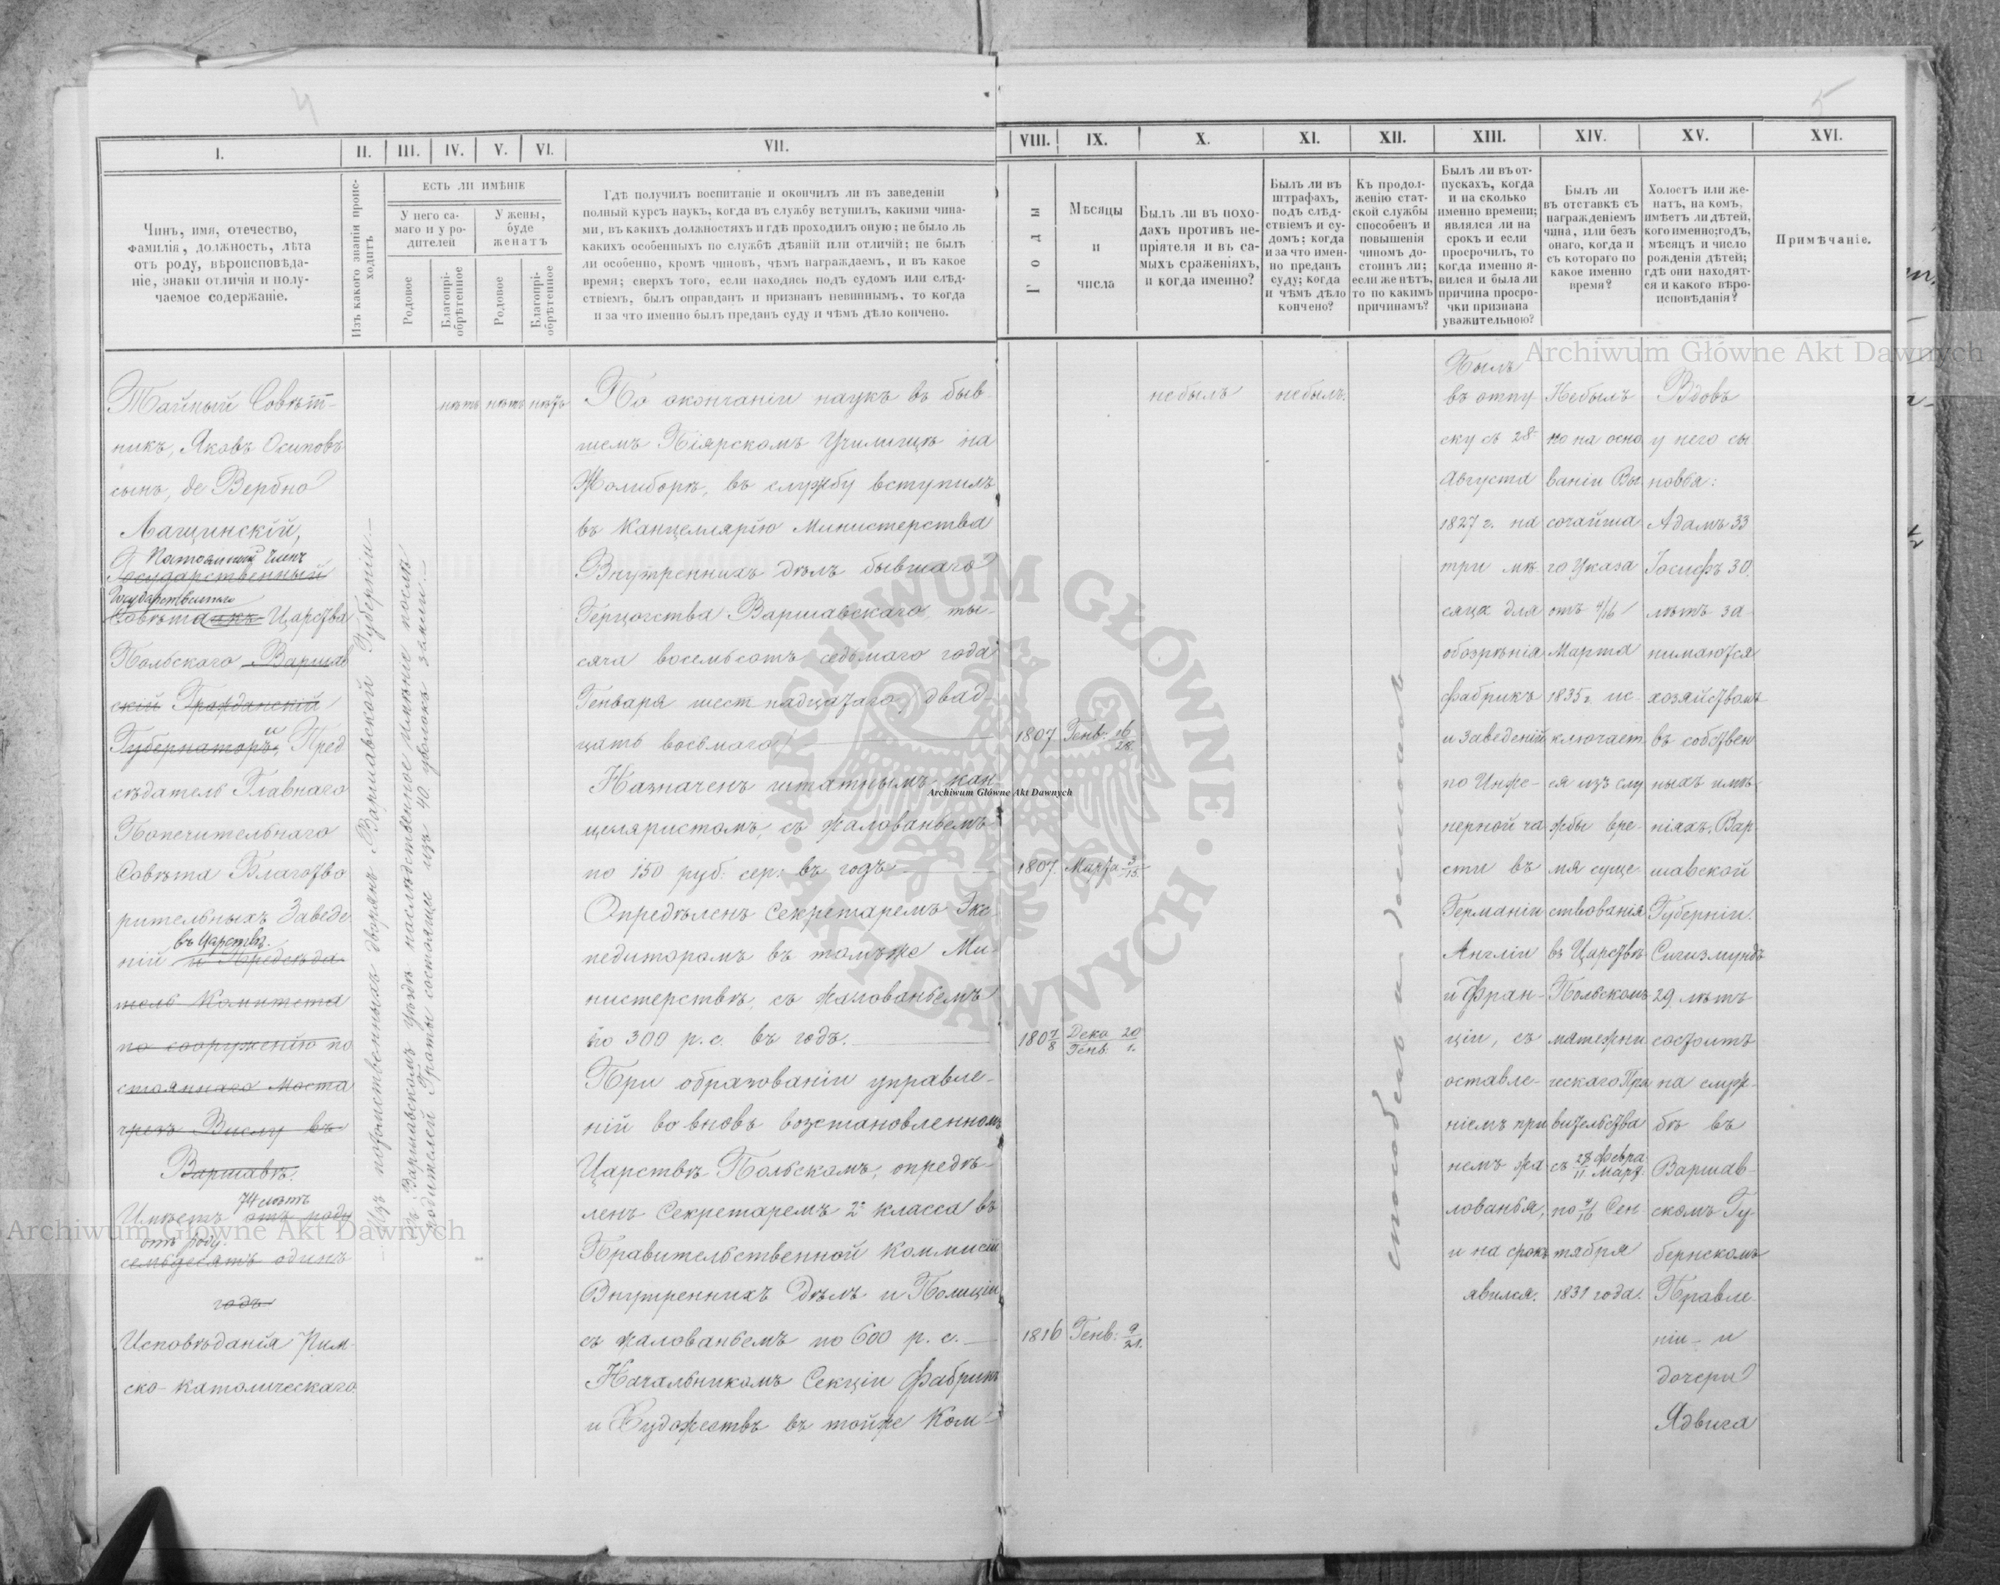 4
5
I.
II.
III.
IV.
V.
VI.
VII.
VIII.
IX.
X.
XI.
XII.
XIII.
XIV.
XV.
XVI.
Чинъ, имя, отечество,
фамилія, должность, лѣта
отъ роду, вѣроисповѣда-
ніе, знаки отличія и полу-
чаемое содержаніе.
Изъ какого званія проис-
ходитъ
ЕСТЬ ЛИ ИМѢНІЕ
У него са-
маго и у ро-
дителей
У жены,
буде
женатъ
Родовое
Благопрі-
обрѣтенное
Родовое
Благопрі-
обрѣтенное
Гдѣ получилъ воспитаніе и окончилъ ли въ заведеніи
полный курсъ наукъ, когда въ службу вступилъ, какими чина-
ми, въ какихъ должностяхъ и гдѣ проходилъ оную; не было ль
какихъ особенныхъ по службѣ дѣяній или отличій; не былъ
ли особенно, кромѣ чиновъ, чѣмъ награждаемъ, и въ какое
время; сверхъ того, если находясь подъ судомъ или слѣд-
ствіемъ, былъ оправданъ и признанъ невиннымъ, то когда
и за что именно былъ преданъ суду и чѣмъ дѣло кончено.
Годы
Мѣсяцы
и
числа
Былъ ли въ похо-
дахъ противъ не-
пріятеля и въ са-
мыхъ сраженіяхъ,
и когда именно?
Былъ ли въ
штрафахъ,
подъ слѣд-
ствіемъ и су-
домъ; когда
и за что имен-
но преданъ
суду; когда
и чѣмъ дѣло
кончено?
Къ продол-
женію стат-
ской службы
способенъ и
повышенія
чиномъ до-
стоинъ ли;
если же нѣтъ,
то по какимъ
причинамъ?
Былъ ли въ от-
пускахъ, когда
и на сколько
именно времени;
являлся ли на
срокъ и если
просрочилъ, то
когда именно я-
вился и была ли
причина просро-
чки признана
уважительною?
Былъ ли
въ отставкѣ съ
награжденіемъ
чина, или безъ
онаго, когда и
съ котораго по
какое именно
время?
Холостъ или же-
натъ, на комъ,
имѣетъ ли дѣтей,
кого именно; годъ,
мѣсяцъ и число
рожденія дѣтей;
гдѣ они находят-
ся и какого вѣро-
исповѣданія?
Примѣчаніе.
Тайный Совѣт-
никъ, Яковъ Осиповъ
сынъ, de Вербно
Лащинскій,
Постоянный Членъ
Государственный
Государственнаго
Совѣтникъ Царства
Польскаго Варшав
скій Гражданскій
Губернаторъ, Пред
сѣдатель Главнаго
Попечительнаго
Совѣта Благотво
рительныхъ Заведе
въ Царствѣ.
ній и Предсѣда-
тель Комитета
по сооруженію по
стояннаго моста
чрезъ Вислу въ
Варшавѣ.
74 лѣтъ
Имѣетъ отъ роду
отъ роду
семьдесятъ одинъ
годъ
Исповѣданія Рим-
ско-католическаго.
Изъ потомственныхъ дворянъ Варшавской Губерніи
въ Варшавскомъ уѣздѣ наслѣдственное имѣніе послѣ
родителей Граты состоящее изъ 40 уволокъ земли.
нѣтъ
нѣтъ
нѣтъ
По окончаніи наукъ въ быв-
шемъ Піярскомъ Училищѣ на
Жолиборѣ, въ службу вступилъ
въ Канцелярію Министерства
Внутреннихъ дѣлъ бывшаго
Герцогства Варшавскаго, ты-
сяча восемьсотъ седьмаго года
Генваря шестнадцатаго/двад-
цать восьмаго
1807
Генв: 16/28.
Назначенъ штатнымъ кан-
целяристомъ, съ жалованьемъ
по 150 руб. сер. въ годъ
1807.
Марта 3/15.
Опредѣленъ Секретаремъ Экс-
педиторомъ въ томъже Ми-
нистерствѣ, съ жалованьемъ
по 300 р. с. въ годъ.
1807/8
Дека 20/Генв. 1.
При образованіи управле-
ній во вновь возстановленномъ
Царствѣ Польскомъ, опредѣ-
ленъ Секретаремъ 2го класса въ
Правительственной Коммисіи
Внутреннихъ Дѣлъ и Полиціи
съ жалованьемъ по 600 р. с.
1816
Генв: 9/21.
Начальникомъ Секціи Фабрикъ
и Художествъ въ тойже Ком-
небылъ
небылъ.
способенъ и достоинъ
Былъ
въ отпу
ску съ 28
Августа
1827 г. на
три мѣ
сяца для
обозрѣнія
фабрикъ
и заведеній
по Инже-
нерной ча
сти въ
Германіи
Англіи
и Фран-
ціи, съ
оставле-
ніемъ при
немъ жа
лованья,
и на срокъ
явился.
Небылъ
но на осно
ваніи Вы
сочайша
го Указа
отъ 4/16
Марта
1835 г. ис-
ключает
ся изъ слу
жбы вре-
мя суще-
ствованія
въ Царствѣ
Польскомъ
мятежни
ческаго Пра
вительства
съ 28 Февра/11 Марта
по 4/16 Сен-
тября
1831 года.
Вдовъ
у него сы
новья:
Адамъ 33
Іосифъ 30
лѣтъ за-
нимаются
хозяйствомъ
въ собствен
ныхъ имѣ-
ніяхъ, Вар
шавской
Губерніи.
Сигизмундъ
29 лѣтъ
состоитъ
на служ-
бѣ въ
Варшав-
скомъ Гу-
бернскомъ
Правле-
ніи и
дочери
Ядвига
Archiwum Główne Akt Dawnych
Archiwum Główne Akt Dawnych
Archiwum Główne Akt Dawnych
ARCHIWUM GŁÓWNE · AKT DAWNYCH ·